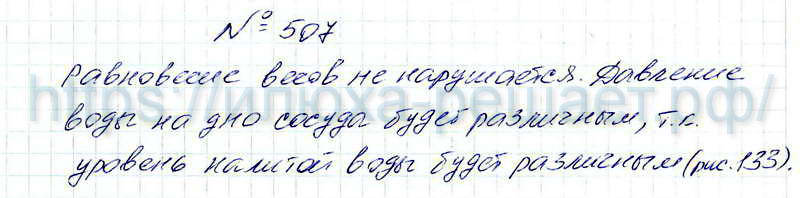 № 507
Равновесие весов не нарушается. Давление
воды на дно сосуда будет различным, т.к.
уровень налитой воды будет различным (рис. 133).